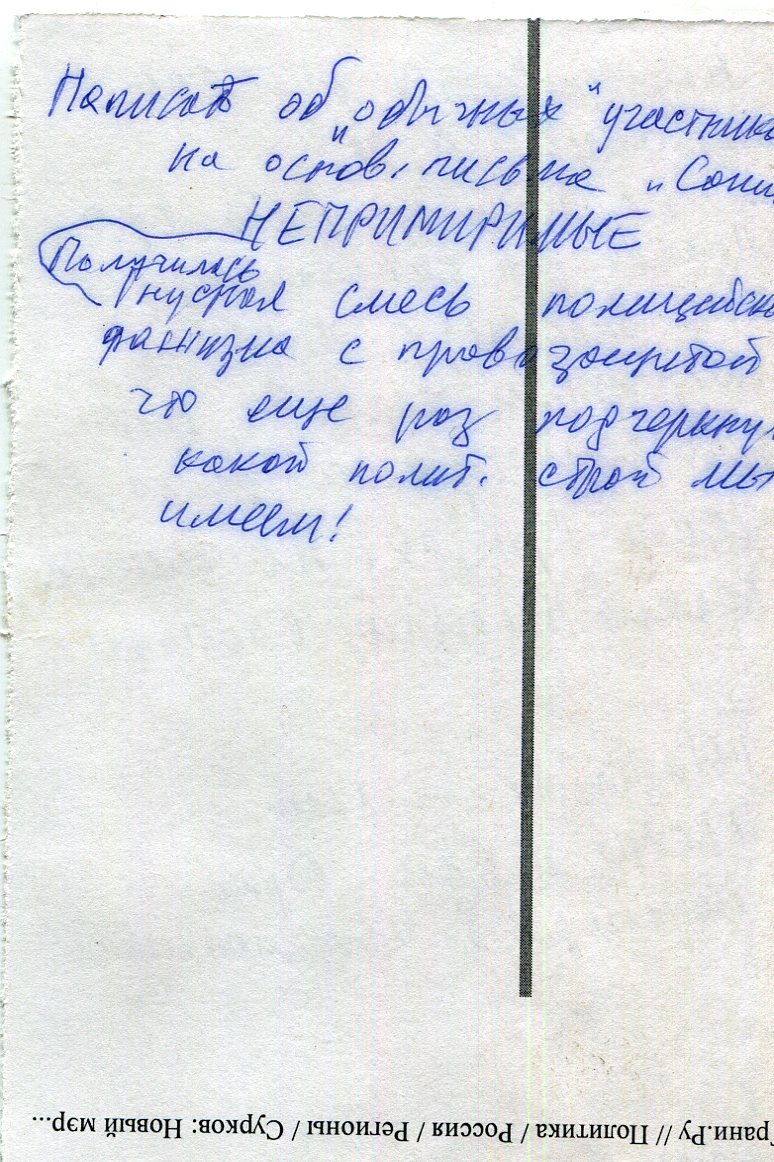 Написать об "обычных" участника
на основ. письма "Сони
НЕПРИМИРИМЫЕ
Получилась
Гнусная смесь полицейско
фашизма с провозащитой
что еще раз подчеркну
какой полит. строй мы
имеем!
Грани.Ру // Политика / Россия / Регионы / Сурков: Новый мэр...